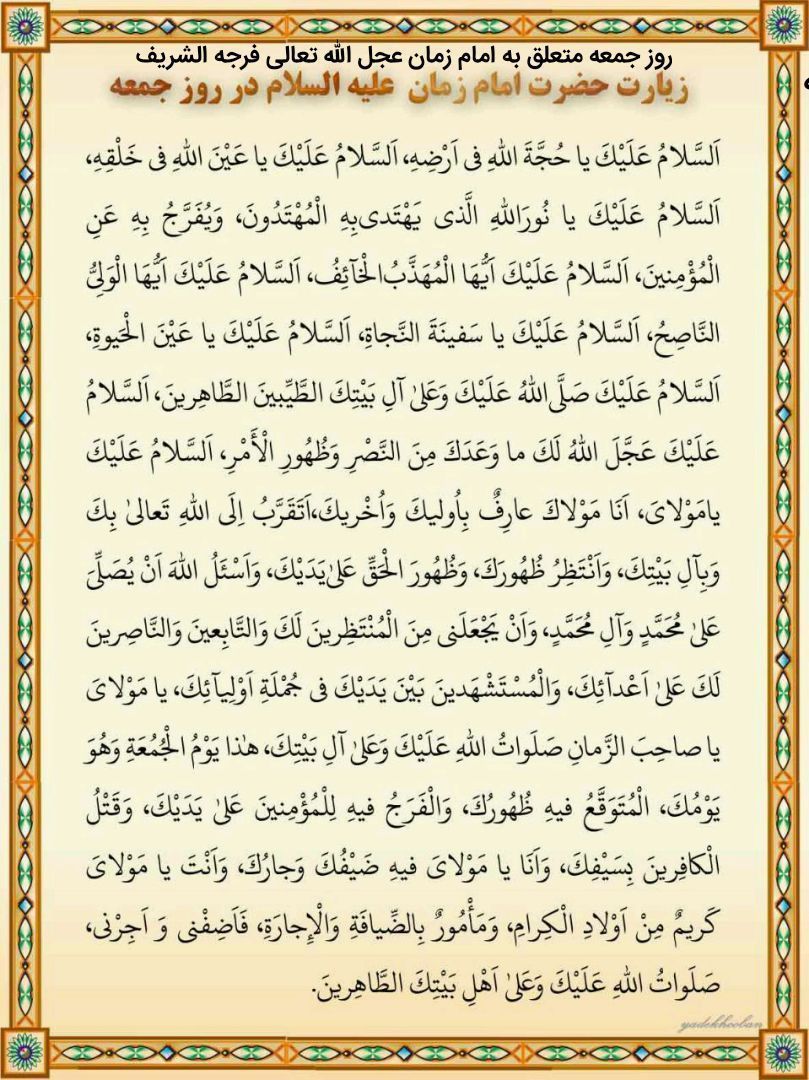 روز جمعه متعلق به امام زمان عجل الله تعالی فرجه الشریف
زیارت حضرت امام زمان علیه السلام در روز جمعه
اَلسَّلامُ عَلَيْكَ يا حُجَّةَ اللهِ فى اَرْضِهِ، اَلسَّلامُ عَلَيْكَ يا عَيْنَ اللهِ فى خَلْقِهِ،
اَلسَّلامُ عَلَيْكَ يا نُورَاللهِ الَّذى يَهْتَدى‌بِهِ الْمُهْتَدُونَ، وَيُفَرَّجُ بِهِ عَنِ
الْمُؤْمِنينَ، اَلسَّلامُ عَلَيْكَ اَيُّهَا الْمُهَذَّبُ‌الْخآئِفُ، اَلسَّلامُ عَلَيْكَ اَيُّهَا الْوَلِىُّ
النَّاصِحُ، اَلسَّلامُ عَلَيْكَ يا سَفينَةَ النَّجاةِ، اَلسَّلامُ عَلَيْكَ يا عَيْنَ الْحَيوةِ،
اَلسَّلامُ عَلَيْكَ صَلَّى‌اللهُ عَلَيْكَ وَعَلىٰ آلِ بَيْتِكَ الطَّيِّبينَ الطَّاهِرينَ، اَلسَّلامُ
عَلَيْكَ عَجَّلَ اللهُ لَكَ ما وَعَدَكَ مِنَ النَّصْرِ وَظُهُورِ الْأَمْرِ، اَلسَّلامُ عَلَيْكَ
يامَوْلاىَ، اَنَا مَوْلاكَ عارِفٌ بِاُوليكَ وَاُخْريكَ،اَتَقَرَّبُ اِلَى اللهِ تَعالىٰ بِكَ
وَبِآلِ بَيْتِكَ، وَاَنْتَظِرُ ظُهُورَكَ، وَظُهُورَ الْحَقِّ عَلىٰ‌يَدَيْكَ، وَاَسْئَلُ اللهَ اَنْ يُصَلِّىَ
عَلىٰ مُحَمَّدٍ وَآلِ مُحَمَّدٍ، وَاَنْ يَجْعَلَنى مِنَ الْمُنْتَظِرينَ لَكَ وَالتَّابِعينَ وَالنَّاصِرينَ
لَكَ عَلىٰ اَعْدآئِكَ، وَالْمُسْتَشْهَدينَ بَيْنَ يَدَيْكَ فى جُمْلَةِ اَوْلِيآئِكَ، يا مَوْلاىَ
يا صاحِبَ الزَّمانِ صَلَواتُ اللهِ عَلَيْكَ وَعَلىٰ آلِ بَيْتِكَ، هٰذا يَوْمُ الْجُمُعَةِ وَهُوَ
يَوْمُكَ، الْمُتَوَقَّعُ فيهِ ظُهُورُكَ، وَالْفَرَجُ فيهِ لِلْمُؤْمِنينَ عَلىٰ يَدَيْكَ، وَقَتْلُ
الْكافِرينَ بِسَيْفِكَ، وَاَنَا يا مَوْلاىَ فيهِ ضَيْفُكَ وَجارُكَ، وَاَنْتَ يا مَوْلاىَ
كَريمٌ مِنْ اَوْلادِ الْكِرامِ، وَمَأْمُورٌ بِالضِّيافَةِ وَالْإِجارَةِ، فَاَضِفْنى وَ اَجِرْنى،
صَلَواتُ اللهِ عَلَيْكَ وَعَلىٰ اَهْلِ بَيْتِكَ الطَّاهِرينَ.
yadekhooban